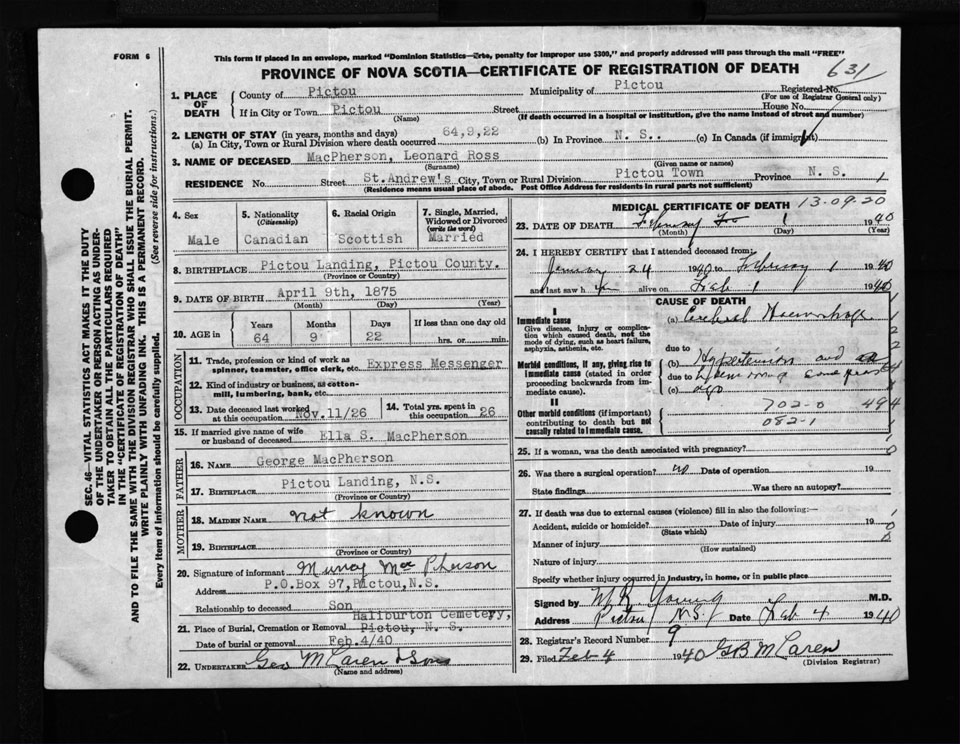 FORM 6
This form if placed in an envelope, marked "Dominion Statistics—Free, penalty for improper use $300," and properly addressed will pass through the mail "FREE"
PROVINCE OF NOVA SCOTIA—CERTIFICATE OF REGISTRATION OF DEATH
631
1. PLACE OF DEATH
County of Pictou
Municipality of Pictou
Registered No.
(For use of Registrar General only)
If in City or Town Pictou Street House No.
(Name) (If death occurred in a hospital or institution, give the name instead of street and number)
2. LENGTH OF STAY (in years, months and days)
(a) In City, Town or Rural Division where death occurred 64,9,22 (b) In Province N. S.. (c) In Canada (if immigrant)
3. NAME OF DECEASED MacPherson, Leonard Ross
(Surname) (Given name or names)
RESIDENCE No. Street St.Andrew's City, Town or Rural Division Pictou Town Province N. S. 1
(Residence means usual place of abode. Post Office Address for residents in rural parts not sufficient)
4. Sex
Male
5. Nationality (Citizenship)
Canadian
6. Racial Origin
Scottish
7. Single, Married, Widowed or Divorced (write the word)
Married
8. BIRTHPLACE Pictou Landing, Pictou County.
(Province or County)
9. DATE OF BIRTH April 9th, 1875
(Month) (Day) (Year)
10. AGE in
Years Months Days If less than one day old
64 9 22 hrs. or min.
OCCUPATION
11. Trade, profession or kind of work as spinner, teamster, office clerk, etc. Express Messenger
12. Kind of industry or business, as cotton-mill, lumbering, bank, etc.
13. Date deceased last worked at this occupation Nov.11/26
14. Total yrs. spent in this occupation 26
15. If married give name of wife or husband of deceased Ella S. MacPherson
FATHER
16. NAME George MacPherson
17. BIRTHPLACE Pictou Landing, N.S.
(Province or County)
MOTHER
18. MAIDEN NAME not known
19. BIRTHPLACE
(Province or Country)
20. Signature of informant Murray MacPherson
Address P.O.Box 97,Pictou,N.S.
Relationship to deceased Son
21. Place of Burial, Cremation or Removal Haliburton Cemetery, Pictou, N. S.
Date of burial or removal Feb.4/40
22. UNDERTAKER Geo McLaren & Sons
(Name and address)
MEDICAL CERTIFICATE OF DEATH 13-09-20
23. DATE OF DEATH February 1 1940
(Month) (Day) (Year)
24. I HEREBY CERTIFY that I attended deceased from:
January 24 1940 to February 1 1940
and last saw him alive on Feb 1 1940
CAUSE OF DEATH
I
Immediate cause
Give disease, injury or complication which caused death, not the mode of dying, such as heart failure, asphyxia, asthenia, etc.
(a) Cerebral Haemorrhage
due to
Morbid conditions, if any, giving rise to immediate cause (stated in order proceeding backwards from immediate cause).
(b) Hypertension and
due to
(c) ago
II
Other morbid conditions (if important) contributing to death but not causally related to immediate cause.
702-0 494
082-1
25. If a woman, was the death associated with pregnancy?
26. Was there a surgical operation? no Date of operation 19
State findings Was there an autopsy?
27. If death was due to external causes (violence) fill in also the following:—
Accident, suicide or homicide? Date of injury 19
(State which)
Manner of injury
(How sustained)
Nature of injury
Specify whether injury occurred in industry, in home, or in public place
Signed by M R Young M.D.
Address Pictou N.S. Date Feb 4 1940
28. Registrar's Record Number 9
29. Filed Feb 4 1940 GB McLaren
(Division Registrar)
SEC. 46—VITAL STATISTICS ACT MAKES IT THE DUTY
OF THE UNDERTAKER OR PERSON ACTING AS UNDER-
TAKER TO OBTAIN ALL THE PARTICULARS REQUIRED
IN THE "CERTIFICATE OF REGISTRATION OF DEATH"
AND TO FILE THE SAME WITH THE DIVISION REGISTRAR WHO SHALL ISSUE THE BURIAL PERMIT.
WRITE PLAINLY WITH UNFADING INK. THIS IS A PERMANENT RECORD.
Every item of information should be carefully supplied. (See reverse side for instructions.)